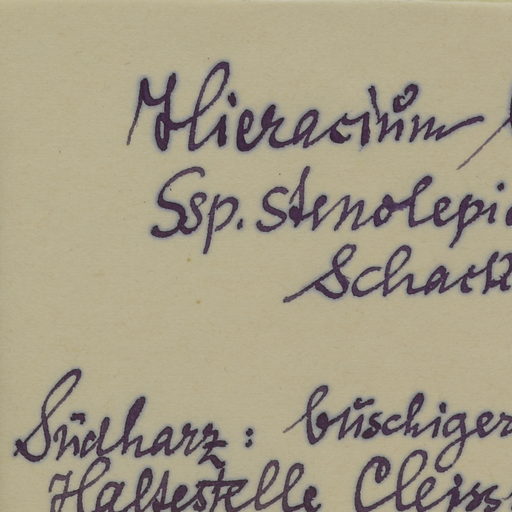 Hieracium
Ssp. stenolepi
Schack
Südharz: buschiger
Haltestelle